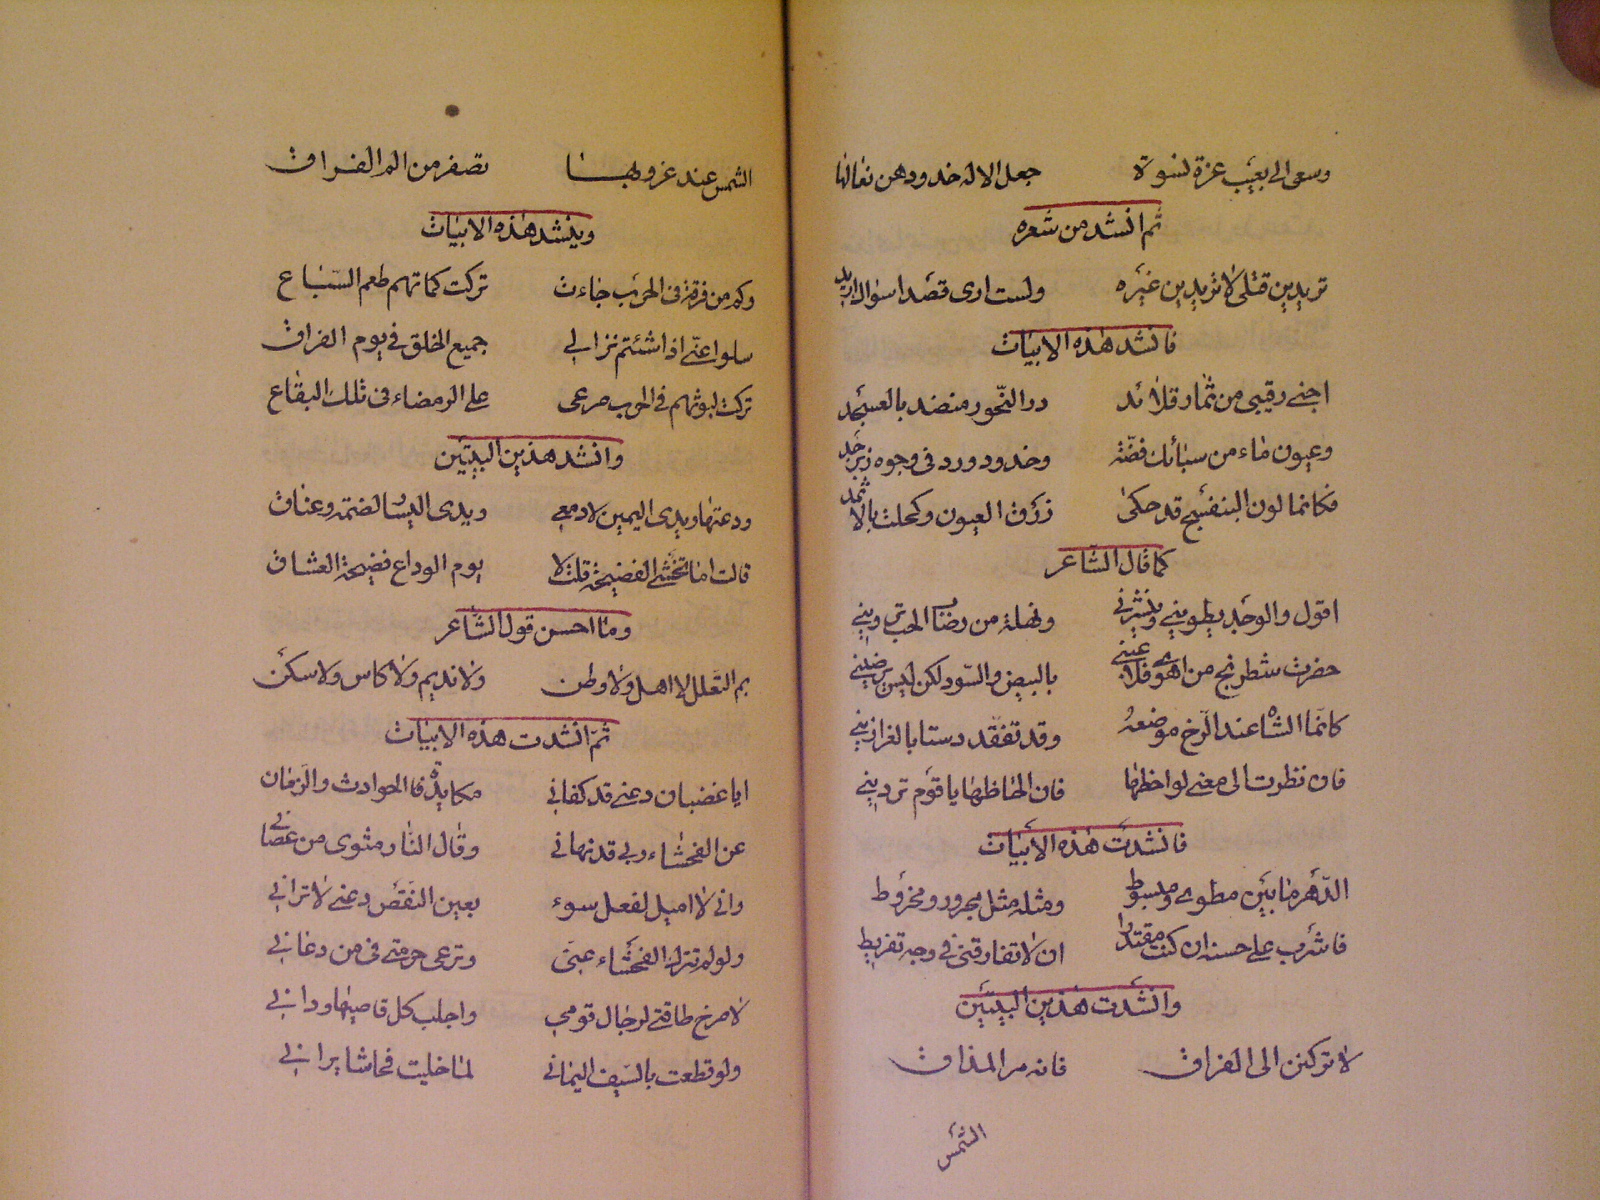 وسعى الى بعيب عزة نسوة جعل الاله خدودهن نعالها
ثم انشد من شعره
تريدين قتلى لا تريدين غيره ولست ارى قصدا سواك اريد
فانشد هذه الابيات
اجنى رقيبى من ثمار قلائد در النحور منضد بالعسجد
وعيون ماء من سبائك فضة وخدود ورد فى وجوه زبرجد
فكانما لون البنفسج قد حكى زرق العيون وكحلت بالاثمد
كما قال الشاعر
اقول والوجد يطوينى وينشرنى ونهلة من رضاب الحب تروينى
حضرت شطرنج من اهوى فلاعبنى بالبيض والسود لكن ليس يرضينى
كانما الشاه عند الرخ موضعه وقد تفقد دستا بالفرازينى
فان نظرت الى معنى لواحظها فان الحاظها يا قوم تردينى
فانشدت هذه الابيات
الدهر ما بين مطوى ومبسوط ومثله مثل مجرور ومخروط
فاشرب على حسنه ان كنت مقتدرا ان لا تفارقنى فى وجه تفريط
وانشدت هذين البيتين
لا تركنن الى الفراق فانه مر المذاق
الشمس
الشمس عند غروبها تصفر من الم الفراق
وينشد هذه الابيات
وكم من فرقة فى الحرب جاءت تركت كماتهم طعم السباع
سلوا عنى اذا شئتم نزالى جميع الخلق فى يوم الفراق
تركت ليوثهم فى الحرب صرعى على الرمضاء فى تلك البقاع
وانشد هذين البيتين
ودعتها ويدى اليمين لادمعى ويدى اليسار لضمة وعناق
قالت اما تخشى الفضيحة قلت لا يوم الوداع فضيحة العشاق
وما احسن قول الشاعر
بم التعلل لا اهل ولا وطن ولا نديم ولا كاس ولا سكن
ثم انشدت هذه الابيات
ايا غضبان دعنى قد كفانى مكايدة فا الحوادث والزمان
عن الفحشاء ربى قد نهانى وقال النار مثوى من عصانى
وانى لا اميل لفعل سوء بعين النقص دعنى لا ترانى
ولو لم تترك الفحشاء عنى وترعى حرمتى فى من دعانى
لاصرخ طاقتى لرجال قومى واجلب كل قاصيها ودانى
ولو قطعت بالسيف اليمانى لما خليت فحاشا يرانى